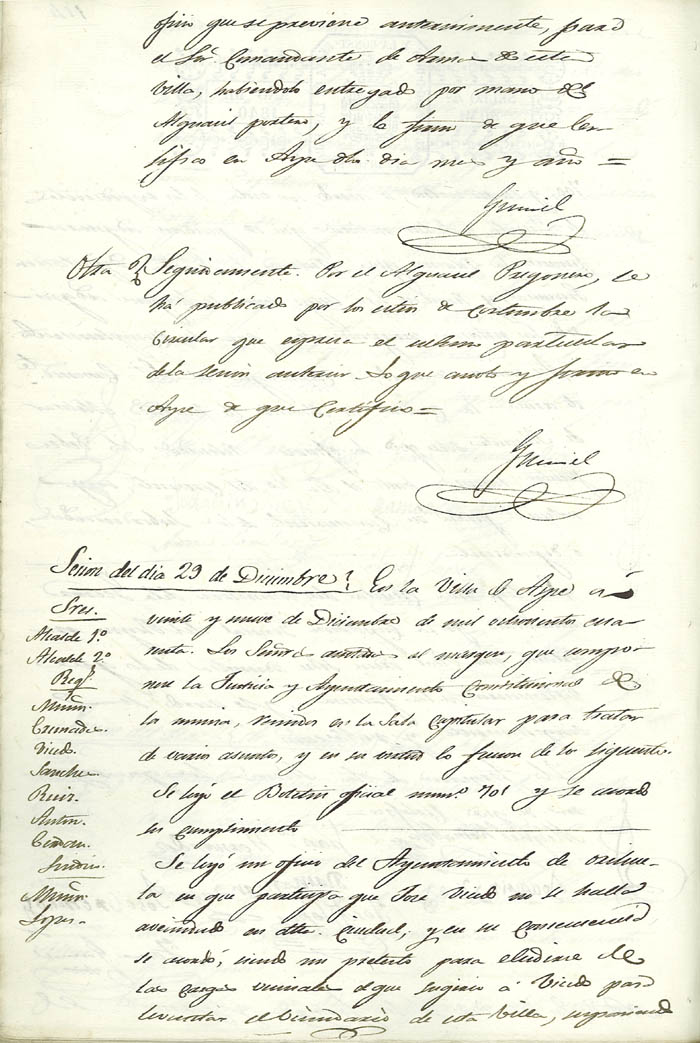 oficio que se previene anteriormente, para
el Sor. Comandante de Armas de esta
Villa, habiendolo entregado por mano del
Alguacil portero, y lo firmo de que Cer-
tifico en Aspe dho. dia mes y año =
Gumiel
Otra Seguidamente. Por el Alguacil Pregonero, se
há publicado por los sitios de costumbre la
Circular que espresa el ultimo particular
de la sesion anterior. Lo que anoto y firmo en
Aspe de que Certifico =
Gumiel
Sesion del dia 29 de Diciembre En la Villa de Aspe á
veinte y nueve de Diciembre de mil ochocientos cua-
renta. Los Señores al margen, que compo-
nen la Justicia y Ayuntamiento Constitucional de
la misma, reunidos en la Sala Capitular para tratar
de varios asuntos, y en su virtud lo fueron de los siguientes.
Se leyó el Boletin oficial num.º 701 y se acordó
su cumplimiento
Se leyó un oficio del Ayuntamiento de Orihue-
la en que participa que José Vicedo no se halla
avecindado en dha. Ciudad, y en su consecuencia
se acordó, siendo un pretesto para eludirse de
las cargas vecinales el que sugirio á Vicedo para
levantar el Vecindario de esta Villa,
Sres.
Alcalde 1.º
Alcalde 2.º
Regs.
Miñon.
Cremades.
Vicedo.
Sanchez.
Ruiz.
Anton.
Cerdan.
Sindicos
Lopez.